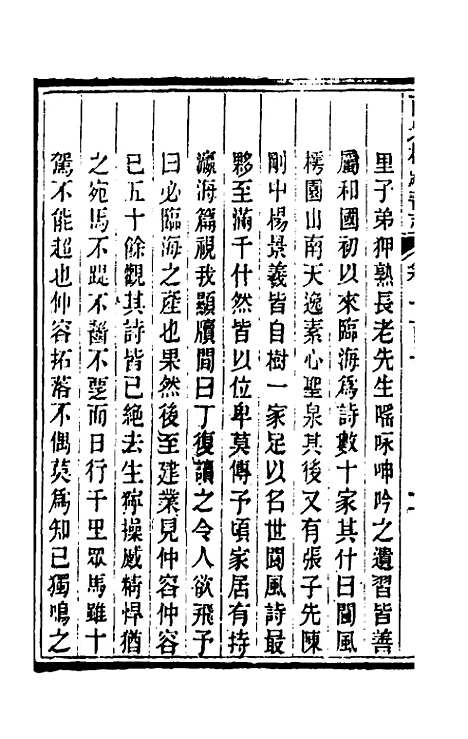 里子弟狎熟長老先生謡咏呻吟之遺習皆善
屬和國初以來臨海爲詩數十家其什曰閬風
樗園山南天逸素心聖泉其後又有張子先陳
剛中楊景羲皆自樹一家足以名世閬風詩最
夥至滿千什然皆以位卑莫傳予頃家居有持
瀛海篇視我顥牘間曰丁復讀之令人欲飛予
曰必臨海之產也果然後至建業見仲容仲容
已五十餘觀其詩皆已絶去生獰操威精悍猶
之宛馬不踶不齧不嘶而日行千里眾馬雖十
駕不能超也仲容拓落不偶莫爲知已獨鳴之